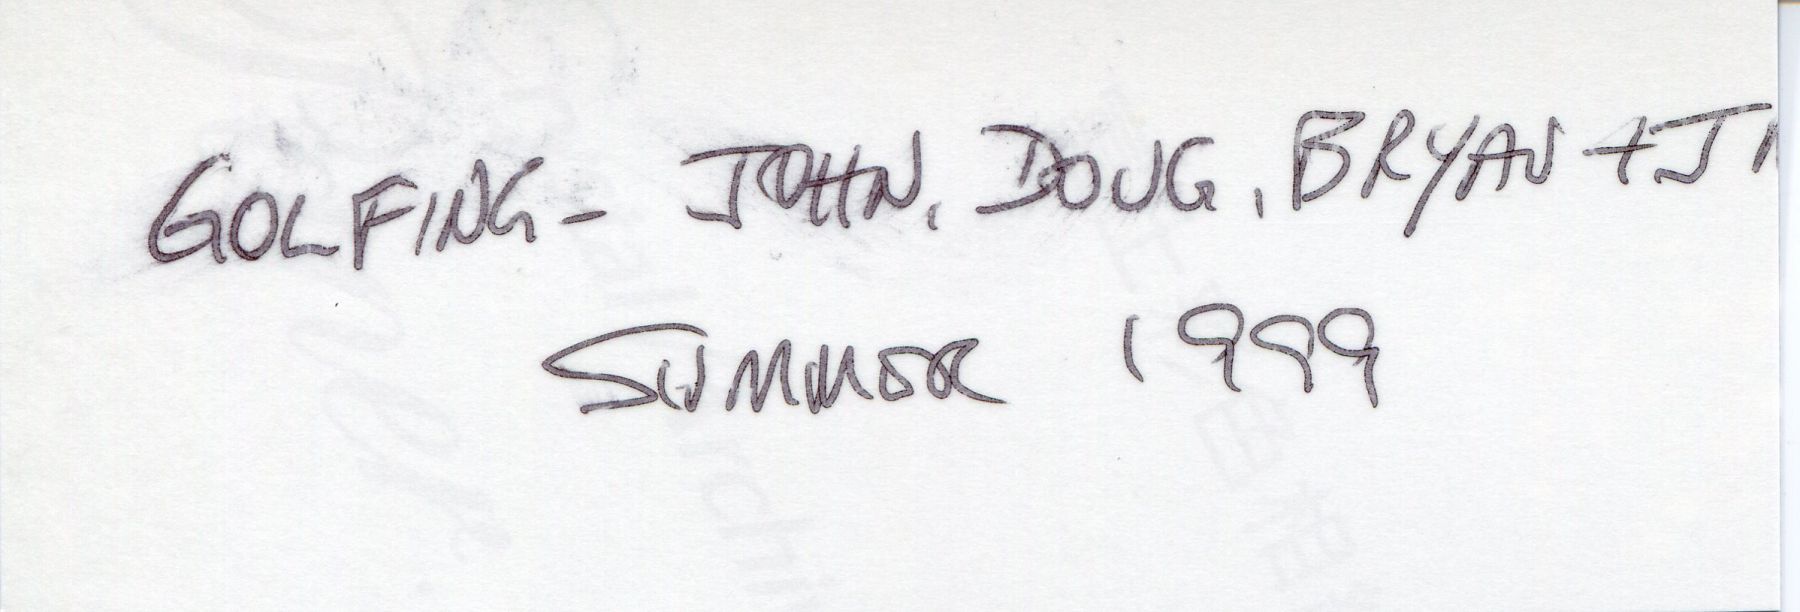 GOLFING - JOHN, DOUG, BRYAN + J
SUMMER 1999